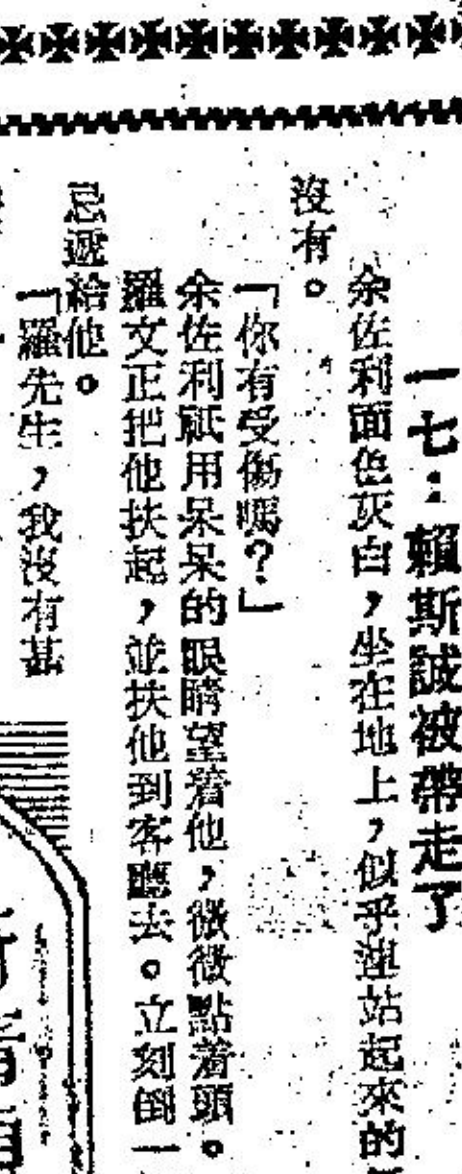 一七：賴斯誠被帶走了
余佐利面色灰白，坐在地上，似乎連站起來的
沒有。
「你有受傷嗎？」
余佐利祇用呆呆的眼睛望着他，微微點着頭。
羅文正把他扶起，並扶他到客廳去。立刻倒一
忌遞給他。
「羅先生，我沒有甚